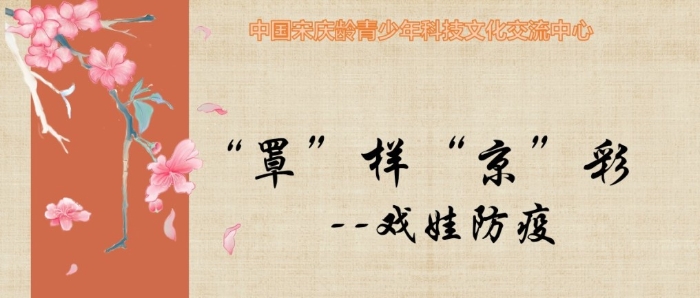 中国宋庆龄青少年科技文化交流中心
“罩”样“京”彩
--戏娃防疫